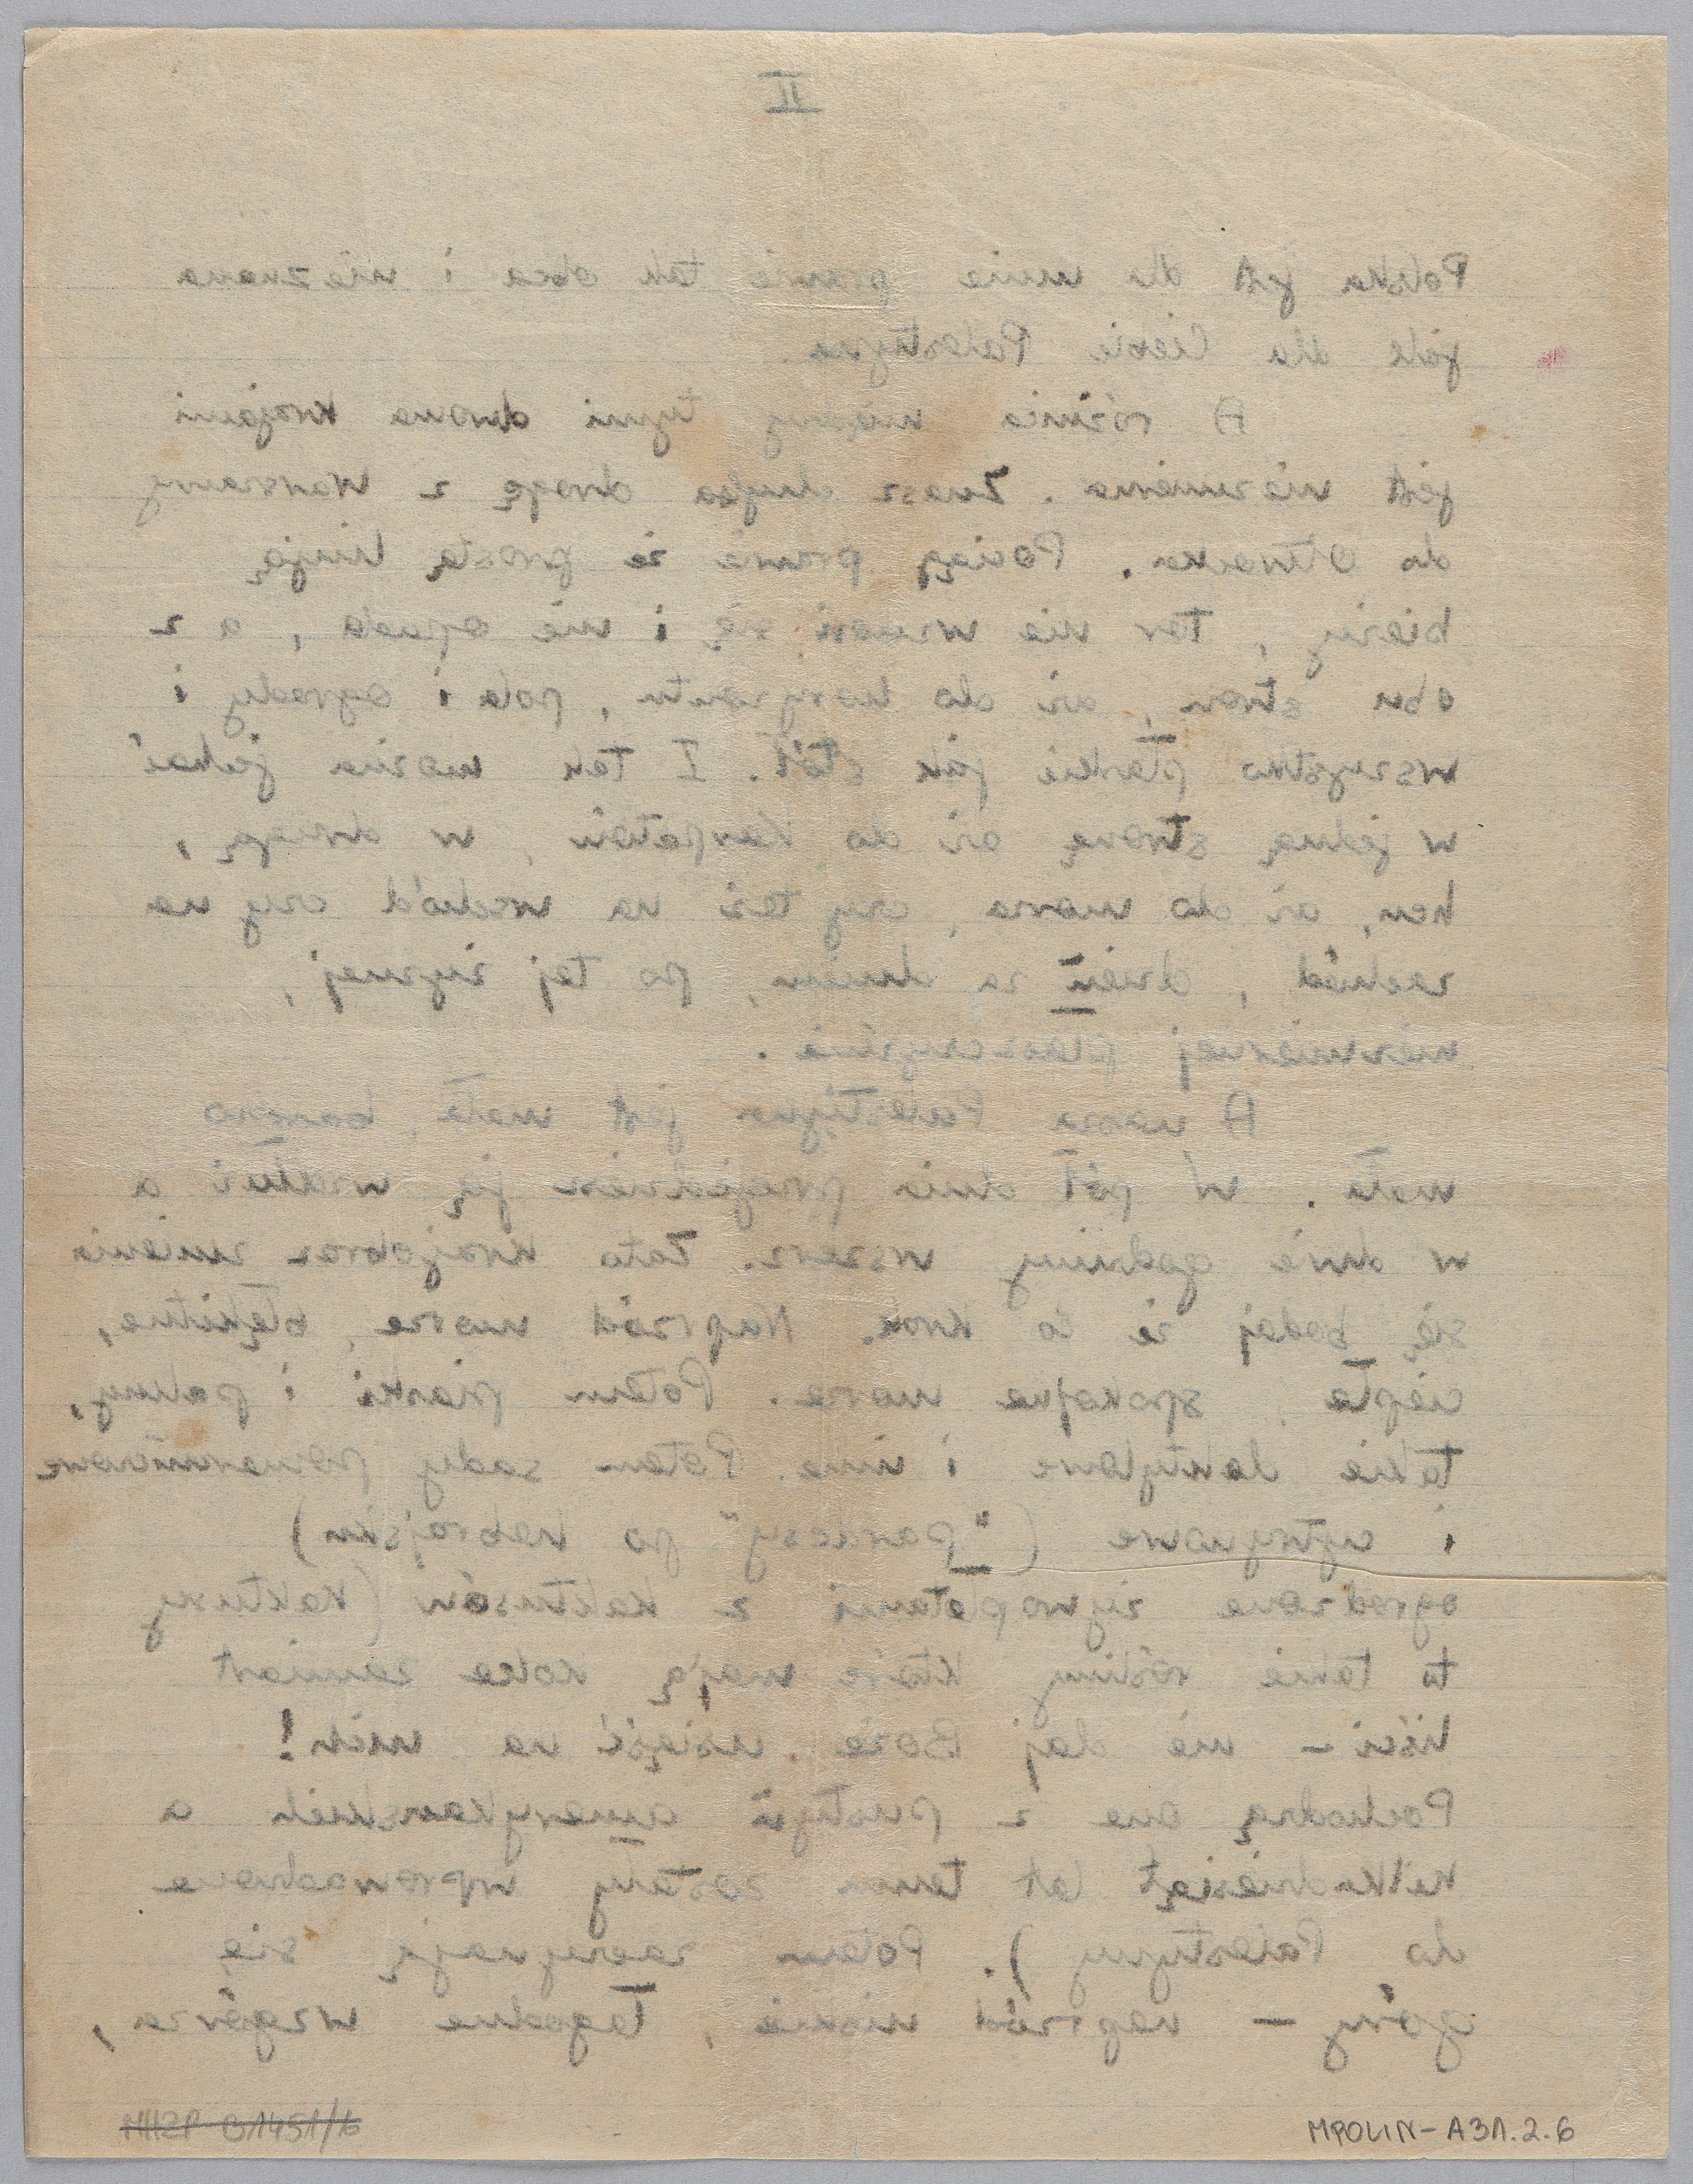 II
Polska jest dla mnie prawie tak obca i nieznana
jak dla Ciebie Palestyna.
A różnica między tymi dwoma krajami
jest niezmierna. Znasz chyba drogę z Warszawy
do Otwocka. Pociąg prawie że prostą linją
bieży, tor nie wznosi się i nie opada, a z
obu stron, aż do horyzontu, pola i ogrody i
wszystko płaskie jak stół. I tak można jechać
w jedną stronę aż do Karpatów, w drugą,
hen, aż do morza, czy też na wschód czy na
zachód, dzień za dniem, po tej żyznej,
niezmiernej płaszczyźnie.
A nasza Palestyna jest mała, bardzo
mała. W pół dnia przejedziesz ją wzdłuż a
w dwie godziny wszerz. Zato krajobraz zmienia
się bodaj że co krok. Naprzód morze, błękitne,
ciepłe, spokojne morze. Potem piaski i palmy,
takie daktylowe i inne. Potem sady pomarańczowe
i cytrynowe ("pardesy" po hebrajsku)
ogrodzone żywopłotami z kaktusów (kaktusy
to takie rośliny które mają kolce zamiast
liści – nie daj Boże usiąść na nich!
Pochodzą one z pustyń amerykańskich a
kilkadziesiąt lat temu zostały wprowadzone
do Palestyny). Potem zaczynają się
góry – naprzód niskie, łagodne wzgórza,
MHŻP B1451/6
MPOLIN-A31.2.6